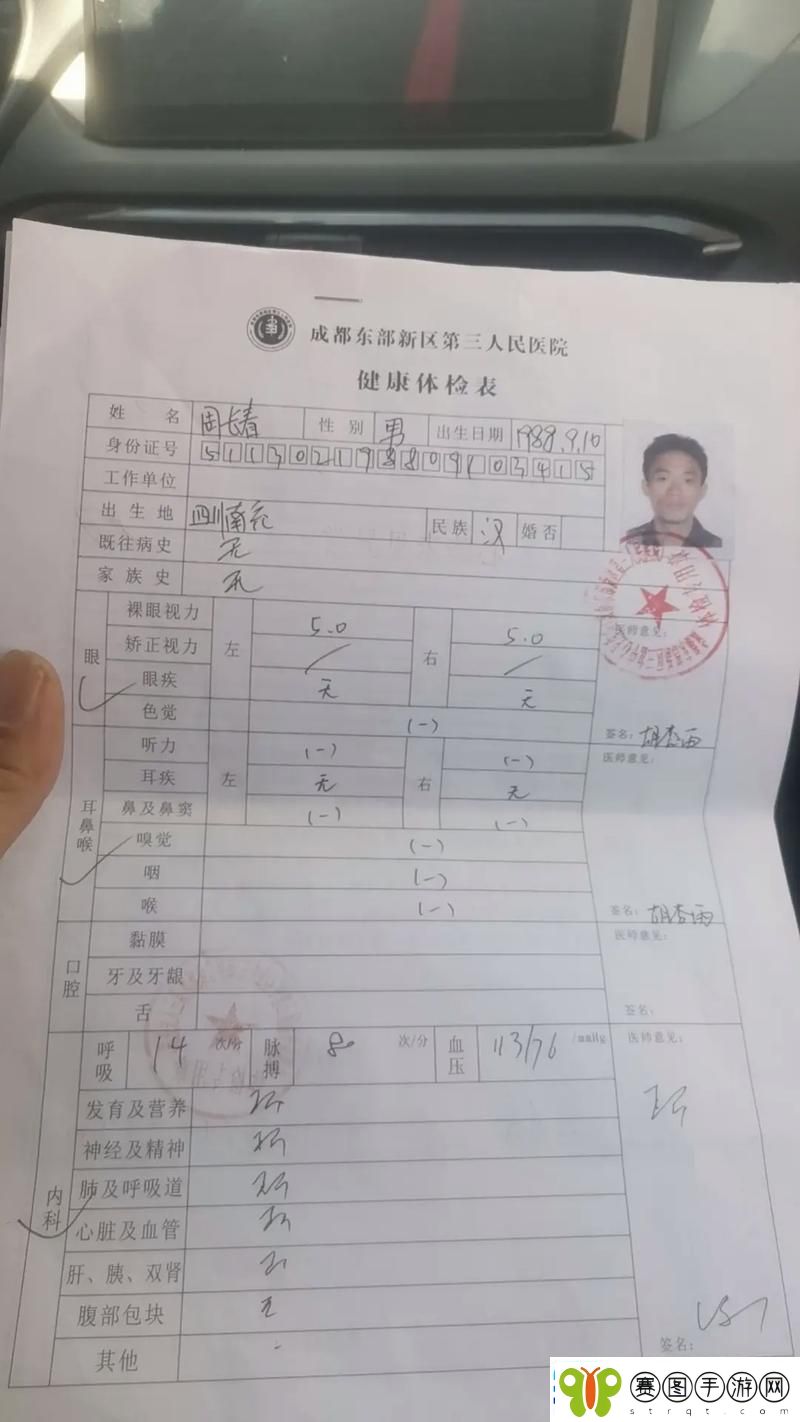 成都东部新区第三人民医院
健康体检表
姓 名 周长春 性别 男 出生日期 1988.9.10
身份证号 511302198809103415
工作单位
出生地 四川南充 民族 汉 婚否
既往病史 无
家族史 无
眼 裸眼视力 左 5.0 右 5.0 医师意见:
矫正视力 / /
眼疾 无 无
色觉 (-) 签名: 胡杏雨
耳鼻喉 听力 左 (-) 右 (-) 医师意见:
耳疾 无 无
鼻及鼻窦 (-) (-)
嗅觉 (-)
咽 (-)
喉 (-) 签名: 胡杏雨
口腔 黏膜 医师意见:
牙及牙龈
舌 签名:
内科 呼吸 14 次/分 脉搏 80 次/分 血压 113/76 /mmHg 医师意见:
发育及营养 正常
神经及精神 正常
肺及呼吸道 正常
心脏及血管 正常
肝、胰、双肾
腹部包块 无
其他 -
签名:
赛图手游网
strqt.com